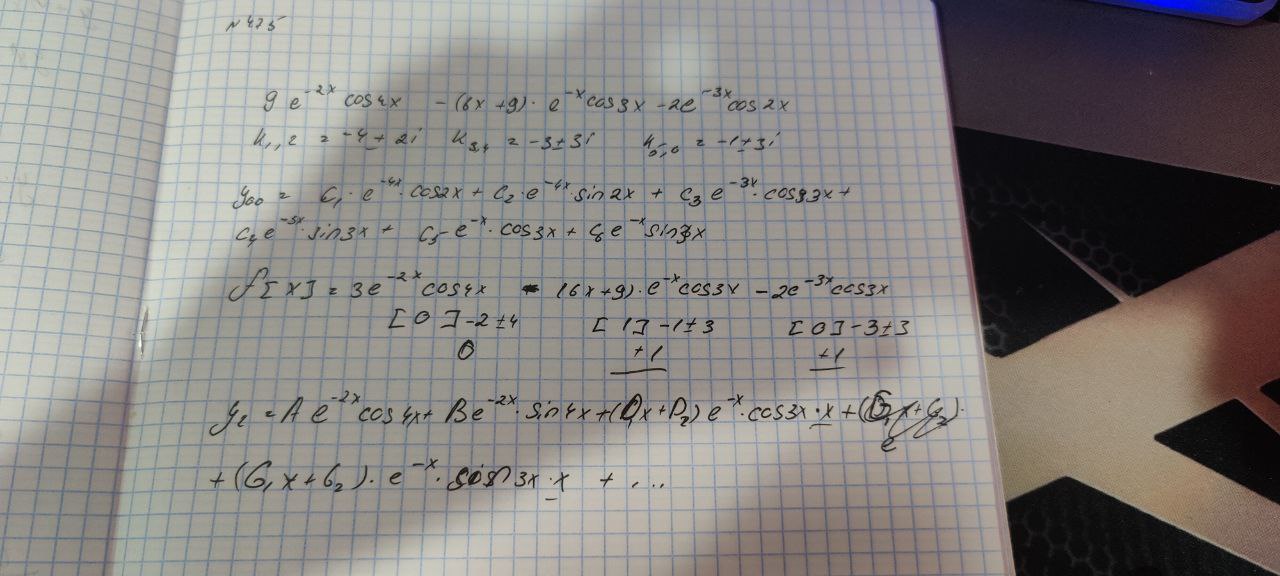 № 475
9 e^{-2x} cos4x - (6x+9)·e^{-x}cos3x - 2e^{-3x}cos2x
K_{1,2} = -4±2i K_{3,4} = -3±3i K_{5,6} = -1±3i
y_{00} = C_1·e^{-4x}·cos2x + C_2·e^{-4x}·sin2x + C_3 e^{-3x}·cos3x+
C_4 e^{-3x}·sin3x + C_5·e^{-x}·cos3x + C_6 e^{-x}sin3x
f[x] = 3e^{-2x}cos4x - (6x+9)·e^{-x}cos3x - 2e^{-3x}cos3x
[0] -2±4 [1] -1±3 [0] -3±3
0 +1 +1
y_2 = A e^{-2x}cos4x + B e^{-2x}·sin4x + (D_1x+D_2) e^{-x}·cos3x·x +
+ (G_1x+G_2)·e^{-x}·sin3x·x + ...